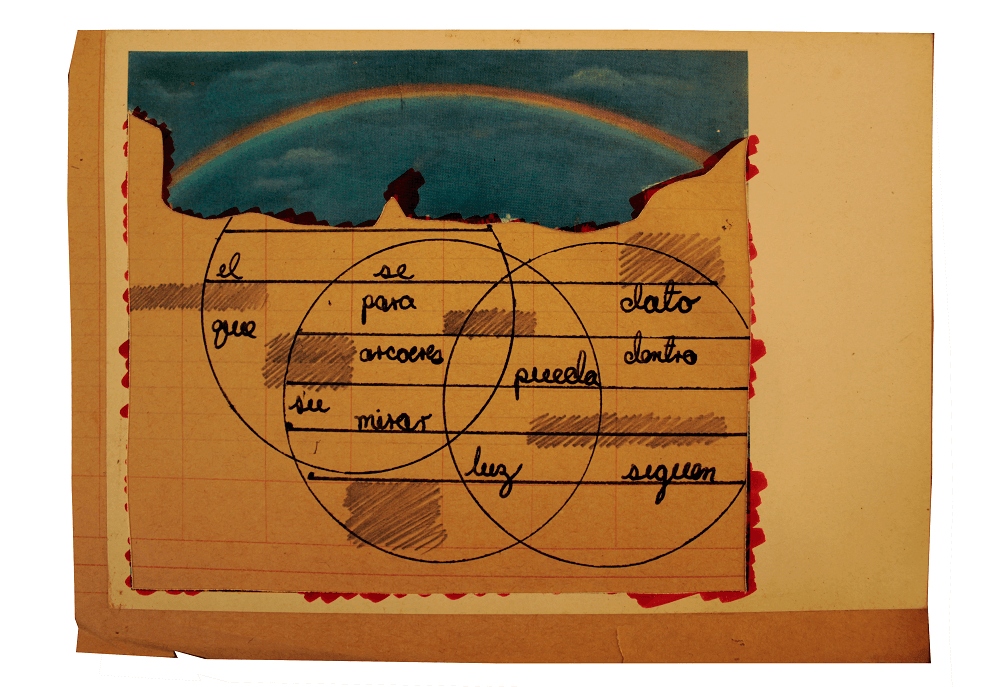 el se
para dato
que arcoeres dentro
pueda
su mirar
luz siguen